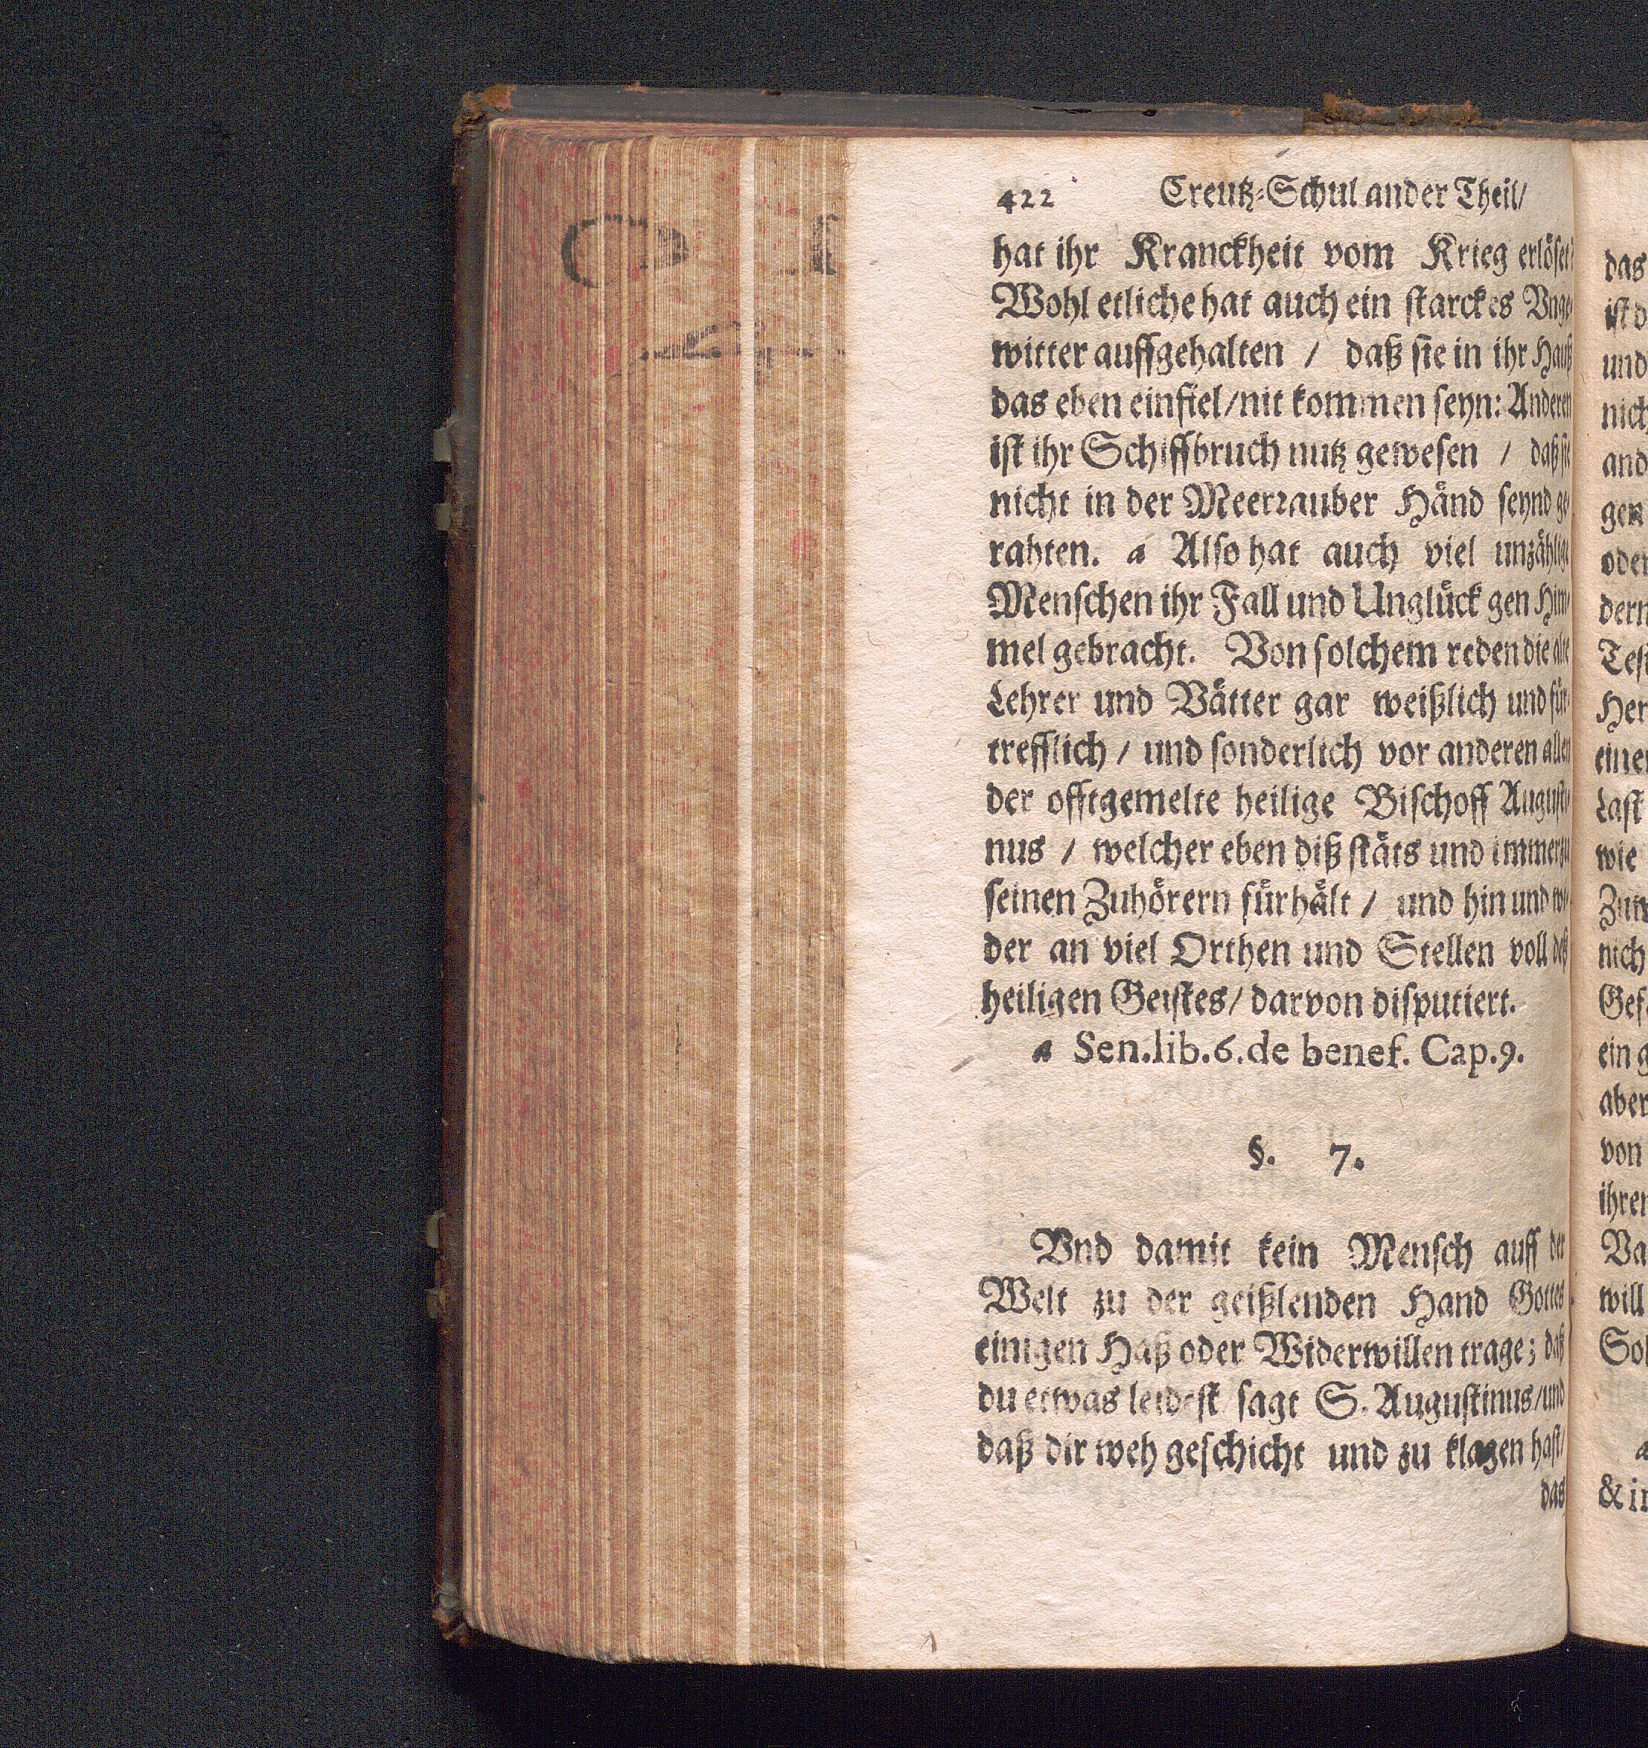 422 Creutz-Schul ander Theil/
hat ihr Kranckheit vom Krieg erlöset:
Wohl etliche hat auch ein starckes Vnge-
witter auffgehalten / daß sie in ihr Hauß
das eben einfiel/nit kommen seyn: Anderen
ist ihr Schiffbruch nutz gewesen / daß sie
nicht in der Meerrauber Händ seynd ge-
rahten. a Also hat auch viel unzählige
Menschen ihr Fall und Unglück gen Him-
mel gebracht. Von solchem reden die alte
Lehrer und Vätter gar weißlich und für-
trefflich / und sonderlich vor anderen allen
der offtgemelte heilige Bischoff Augusti-
nus / welcher eben diß stäts und immerzu
seinen Zuhörern fürhält / und hin und wi-
der an viel Orthen und Stellen voll deß
heiligen Geistes/ darvon disputiert.
a Sen.lib.6.de benef. Cap.9.
§. 7.
Vnd damit kein Mensch auff der
Welt zu der geißlenden Hand Gottes
einigen Haß oder Widerwillen trage; daß
du etwas leidest sagt S. Augustinus/und
daß dir weh geschicht und zu klagen hast/
das
das
ist d
und
nich
and
gen
oder
dern
Test
Her
einer
Last
wie
Zun
nich
Gef
ein g
aber
von
ihren
Va
will
Sol
a
& in